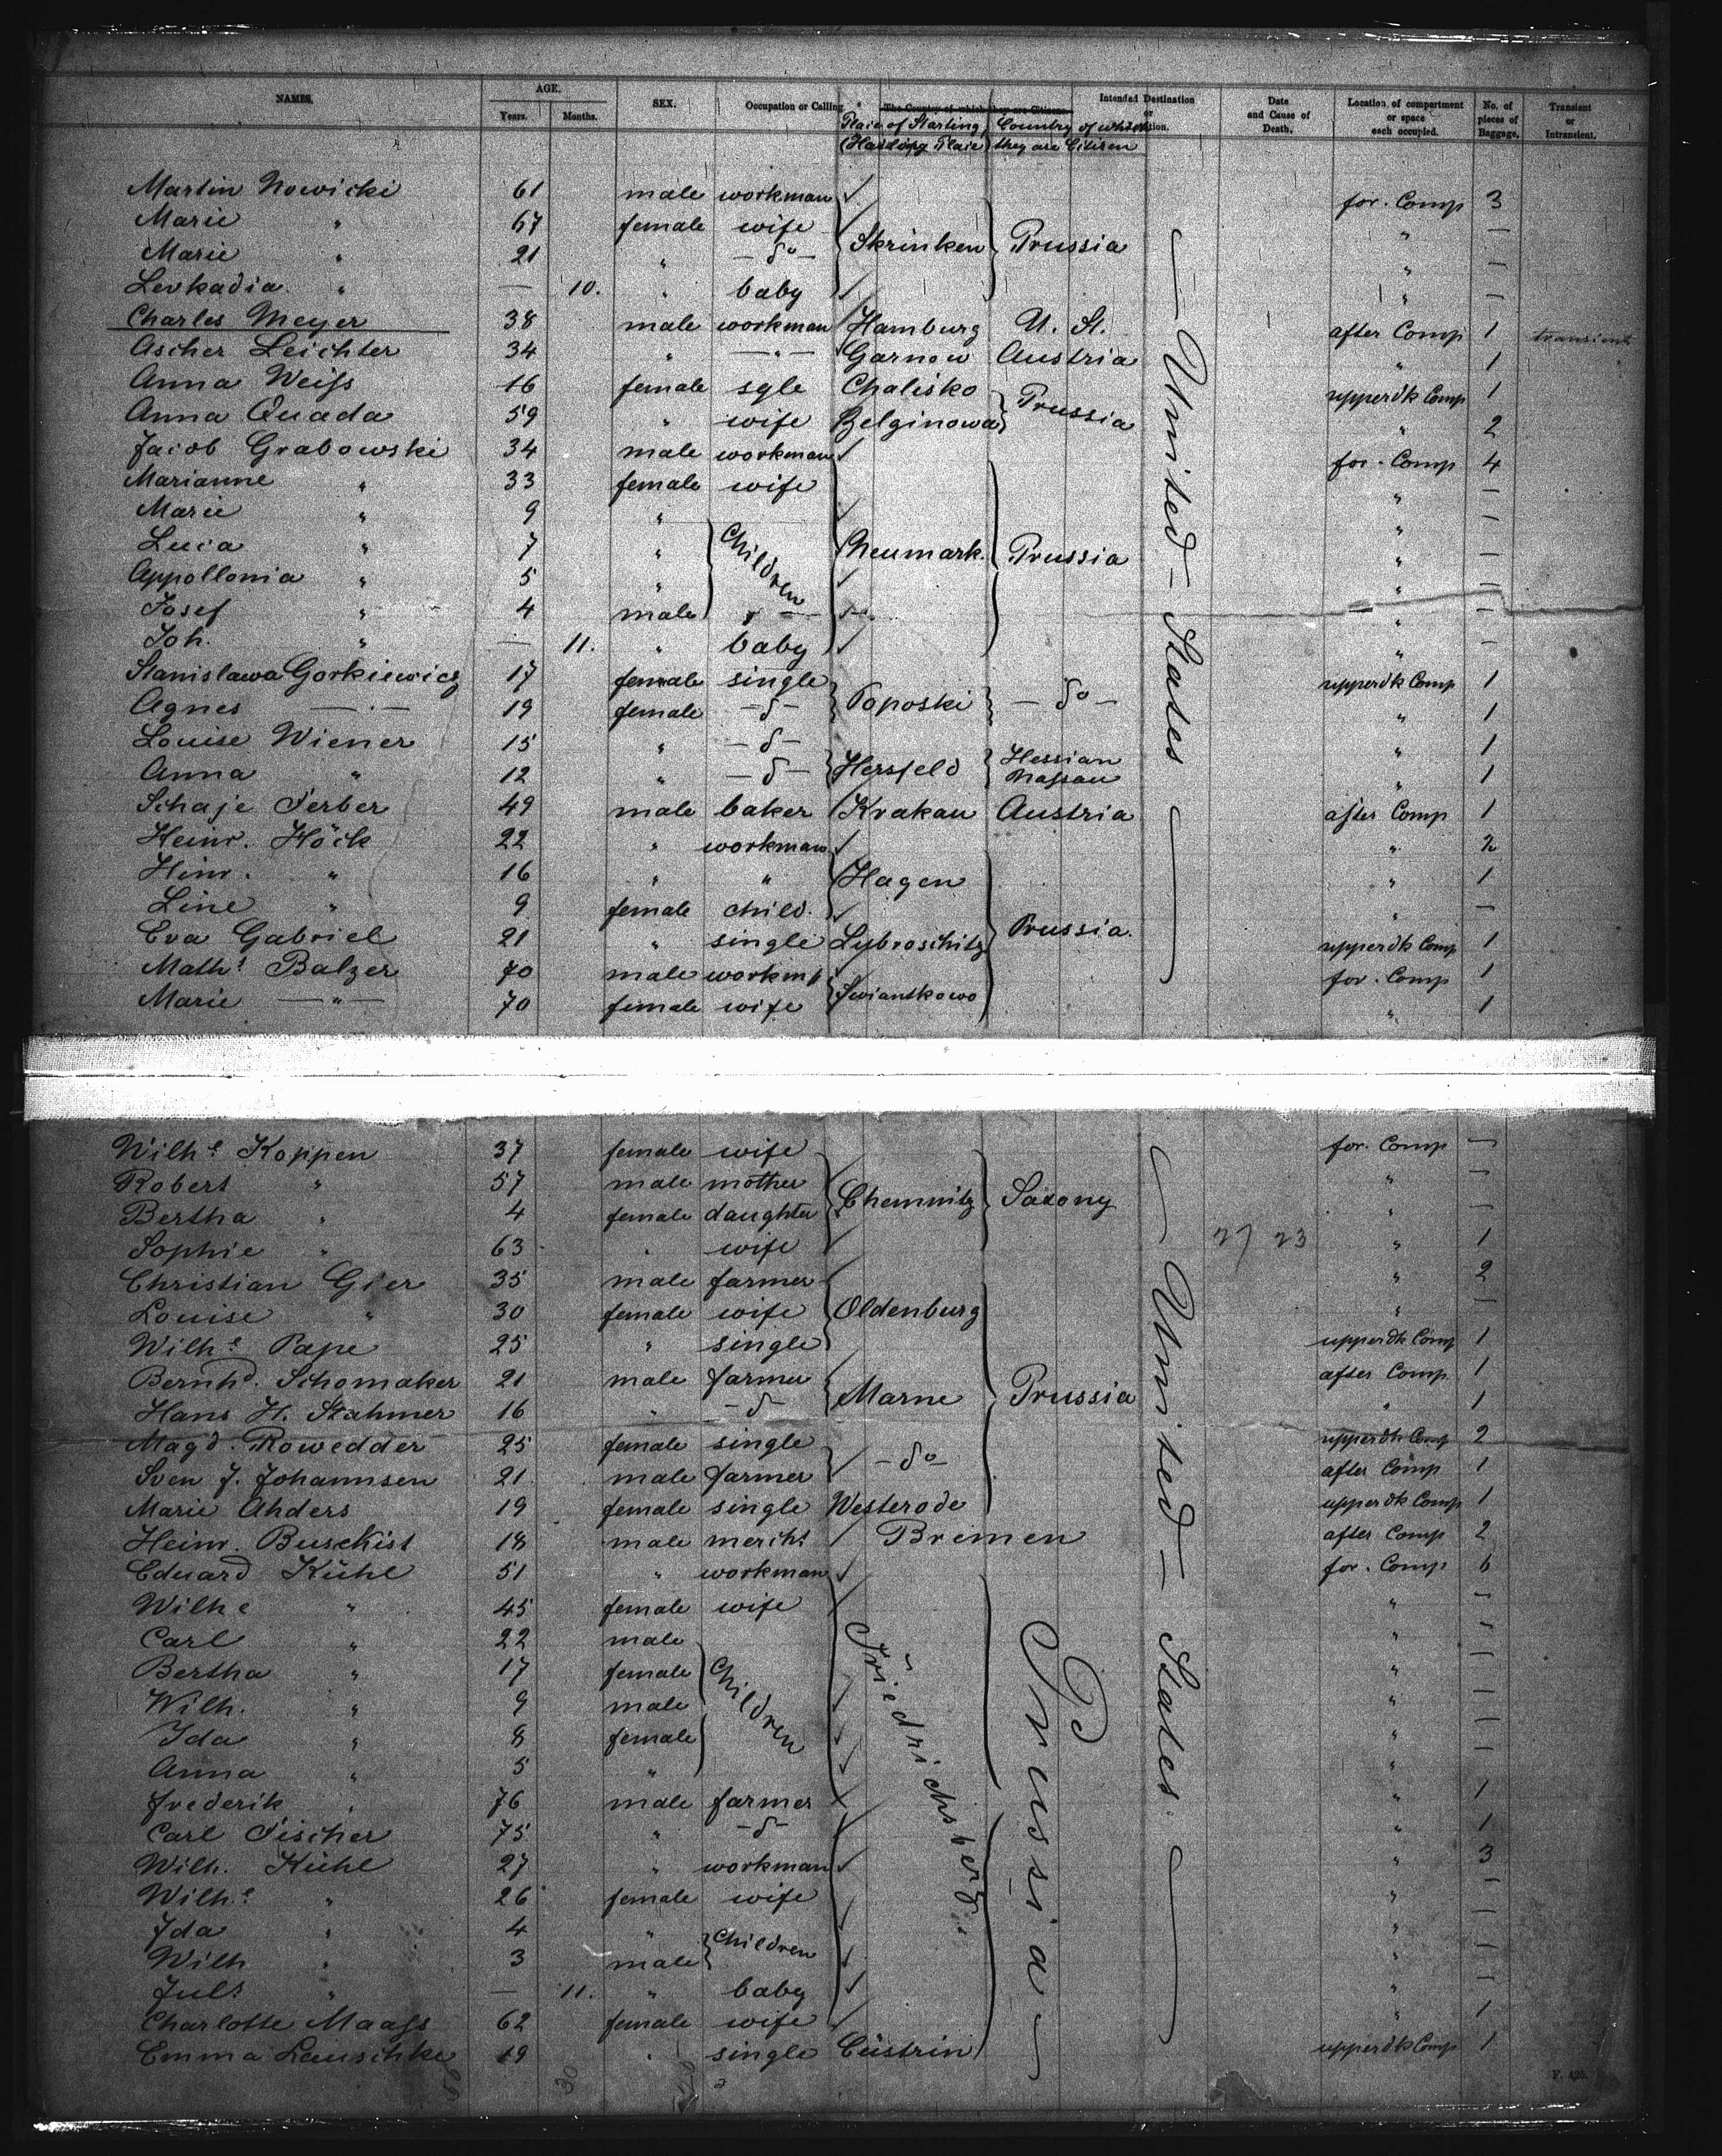 NAMES. AGE. Years. Months. SEX. Occupation or Calling. The Country of which they are Citizens Intended Destination or Location. Date and Cause of Death. Location of compartment or space each occupied. No. of pieces of Baggage. Transient or Intransient.
Place of Starting, Country of which
Place they are Citizen
Martin Nowicki 61 male workman for. Comp 3
Marie " 67 female wife " —
Marie " 21 " — do — Skrinken Prussia " —
Levkadia " — 10. " baby " —
Charles Meyer 38 male workman Hamburg U. St. after Comp 1 transient
Ascher Leichter 34 " — " — Garnow Austria " 1
Anna Weiss 16 female sgle Chalisko Prussia upperdk Comp 1
Anna Quada 59 " wife Belginowa " 2
Jacob Grabowski 34 male workman for. Comp 4
Marianne " 33 female wife " —
Marie " 9 " " —
Luca " 7 " Children Neumark. Prussia " —
Appollonia " 5 " " —
Josef " 4 male " " —
Joh. " — 11. " baby " —
Stanislawa Gorkiewicz 17 female single upperdk Comp 1
Agnes — " — 19 female — d — Toposki — do — " 1
Louise Wiener 15 " — d — " 1
Anna " 12 " — d — Hersfeld Hessian Nassau " 1
Schaje Ferber 49 male baker Krakau Austria after Comp 1
Heinr. Höck 22 " workman " 2
Hinr. " 16 " " Hagen " 1
Line " 9 female child. " —
Eva Gabriel 21 " single Lybroschitz Prussia. upperdk Comp 1
Maths Balzer 70 male workm for. Comp 1
Marie — " — 70 female wife Swiantkowo " 1
United States
Wilhe Koppen 37 female wife for. Comp —
Robert " 57 male mother Chemnitz Saxony " —
Bertha " 4 female daughter " —
Sophie " 63 " wife 27 23 " 1
Christian Gier 35 male farmer " 2
Louise " 30 female wife Oldenburg " —
Wilhe Pape 25 " single upperdk Comp 1
Bernhd. Schomaker 21 male farmer after Comp 1
Hans H. Stahmer 16 " — d — Marne Prussia " 1
Magd. Rowedder 25 female single upperdk Comp 2
Sven J. Johannsen 21 male farmer — do — after Comp 1
Marie Ahders 19 female single Westerode upperdk Comp 1
Heinr. Buschist 18 male mercht Bremen after Comp 2
Eduard Kühl 51 " workman for. Comp 6
Wilhe " 45 female wife " —
Carl " 22 male " —
Bertha " 17 female Children " —
Wilh. " 9 male " —
Ida " 8 female " —
Anna " 5 " "
Frederik " 76 male farmer " 1
Carl Fischer 75 " — d — " 1
Wilh. Kühl 27 " workman " 3
Wilhe " 26 female wife " —
Ida " 4 " Children " —
Wilh " 3 male " —
Juls " — 11. " baby " —
Charlotte Maass 62 female wife " 1
Emma Lauschke 19 " single Cüstrin upperdk Comp 1
Friedrichsberg.
Prussia
United States.
50 30